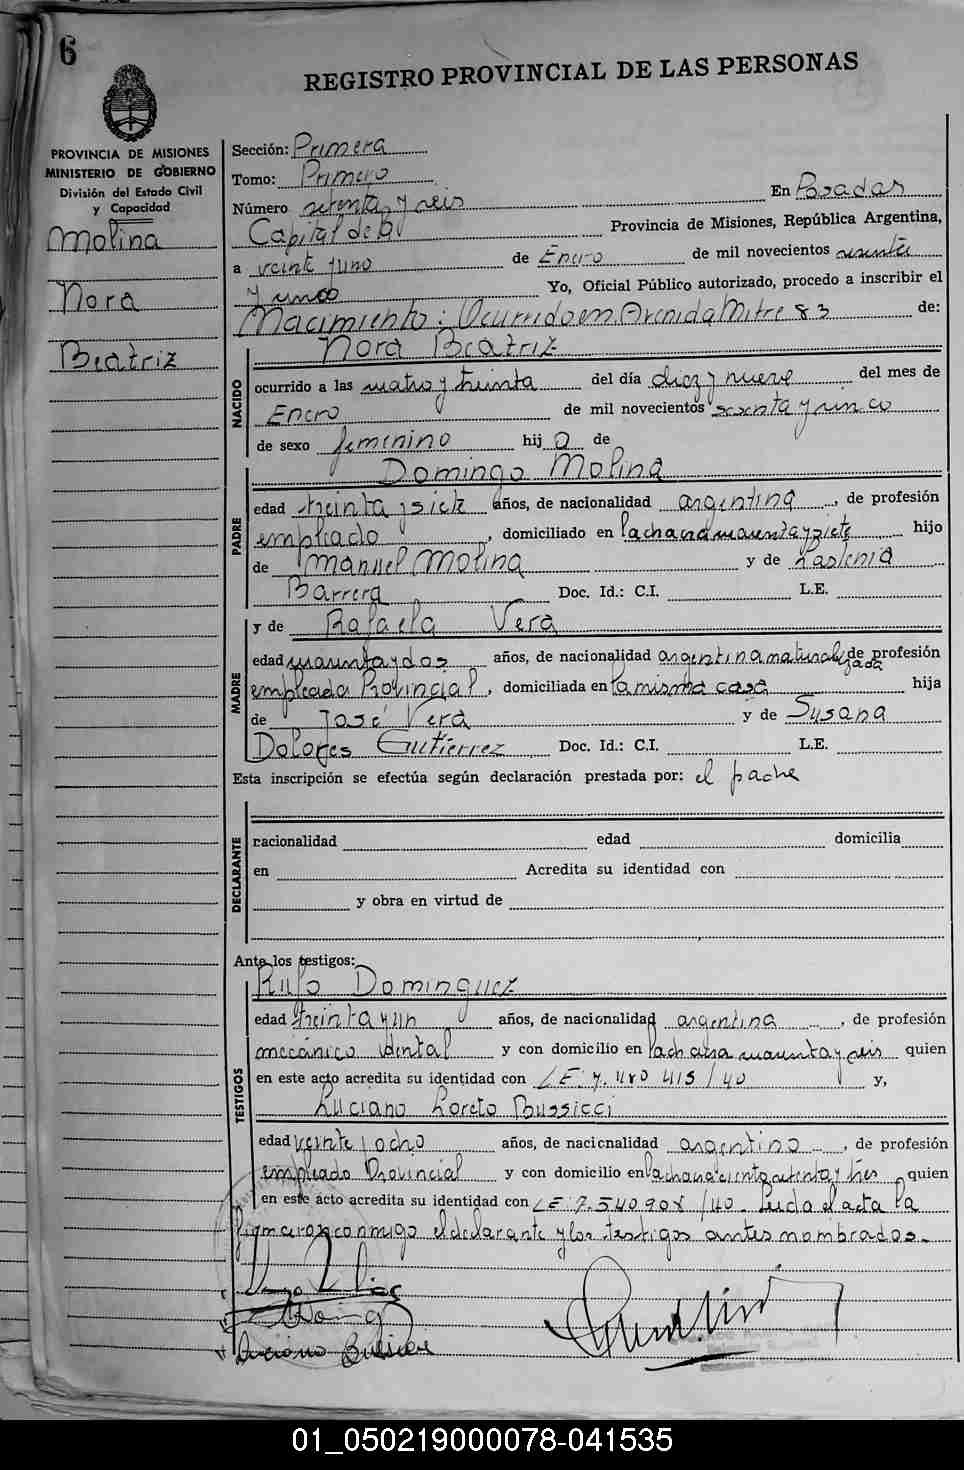 6
REGISTRO PROVINCIAL DE LAS PERSONAS
PROVINCIA DE MISIONES
MINISTERIO DE GOBIERNO
División del Estado Civil
y Capacidad
Molina
Nora
Beatriz
Sección: Primera
Tomo: Primero
Número setenta y seis En Posadas
Capital de la Provincia de Misiones, República Argentina,
a veint y uno de Enero de mil novecientos sesenta
y cinco Yo, Oficial Público autorizado, procedo a inscribir el
Nacimiento: Ocurrido en Avenida Mitre 83 de:
Nora Beatriz
NACIDO
ocurrido a las cuatro y treinta del día diez y nueve del mes de
Enero de mil novecientos sesenta y cinco
de sexo femenino hij a de
Domingo Molina
PADRE
edad treinta y siete años, de nacionalidad argentina, de profesión
empleado, domiciliado en chacra cuarenta y siete hijo
de Manuel Molina y de Laslenia
Barrera Doc. Id.: C.I. L.E.
y de Rafaela Vera
MADRE
edad cuarenta y dos años, de nacionalidad argentina naturalizada de profesión
empleada Provincial, domiciliada en la misma casa hija
de José Vera y de Susana
Dolores Gutierrez Doc. Id.: C.I. L.E.
Esta inscripción se efectúa según declaración prestada por: el padre
DECLARANTE
racionalidad edad domicilia
en Acredita su identidad con
y obra en virtud de
Ante los testigos:
Rufo Dominguez
TESTIGOS
edad treinta y un años, de nacionalidad argentina, de profesión
mecánico dental y con domicilio en chacra cuarenta y seis quien
en este acto acredita su identidad con LE. 7. 480 415 / 40 y,
Luciano Loreto Bussicci
edad veinte y ocho años, de nacionalidad argentino, de profesión
empleado Provincial y con domicilio en chacra ciento setenta y tres quien
en este acto acredita su identidad con LE 7.540908 /40. Leida el acta la
firmaron conmigo el declarante y los testigos antes nombrados.
Luciano
01_050219000078-041535